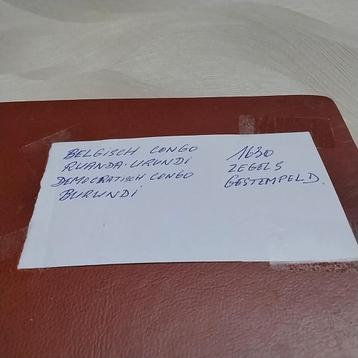 BELGISCH CONGO
RUANDA-URUNDI
DEMOCRATISCH CONGO
BURUNDI
1630
ZEGELS
GESTEMPELD.